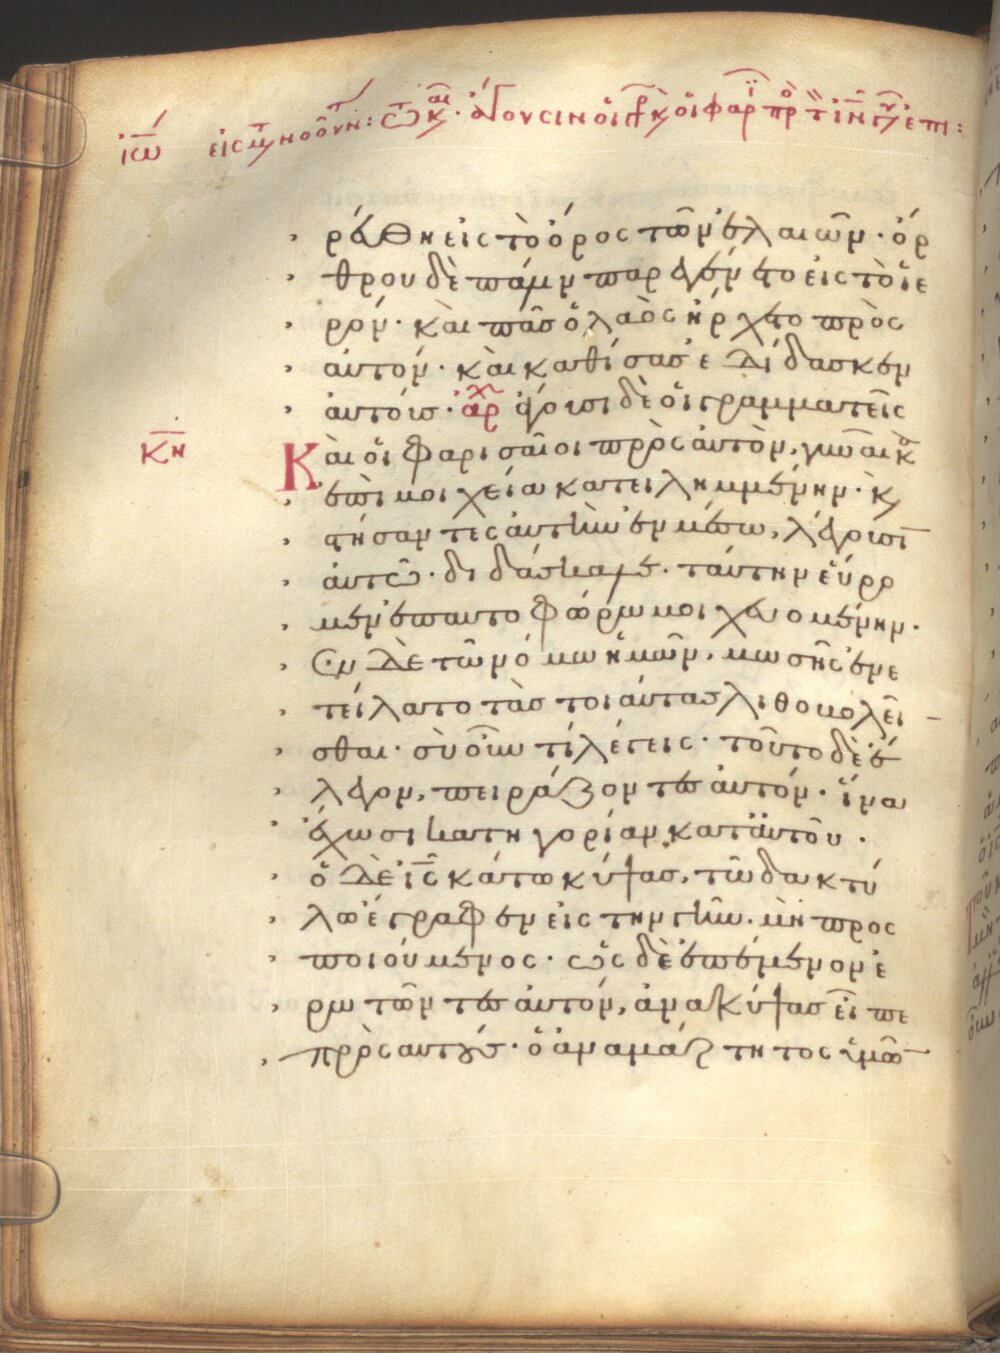 ἰω̅ εἰς μτνοοῦν: τῷ κ αι· ἄγουσιν οἱ γρ κ̀ οἱ φαρ πρ τ ἰν γυ ἐπι:
ρεύθη εἰς τὸ ὄρος τῶν ἐλαιῶν· ὄρ
θρου δὲ πάλιν παρεγένετο εἰς τὸ ἱε
ρόν· καὶ πᾶσ ὁ λαὸς ἤρχετο πρὸς
αὐτόν· καὶ καθίσασ ἐδίδασκεν
αὐτούσ· ἀρχ ἄγουσι δὲ οἱ γραμματεῖς
κ̅η̅
Καὶ οἱ φαρισαῖοι πρὸς αὐτὸν, γυναῖκα
ἐπὶ μοιχεία κατειλημμένην· κ̀
στήσαντες αὐτὴν ἐν μέσω, λέγουσι̅
αὐτῶ· διδάσκαλε· ταύτην εὕρο
μεν ἐπαυτοφώρω μοιχευομένην·
Ἐν δὲ τῶ νόμω ἡμῶν, μωσῆς ἐνε
τείλατο τὰσ τοιαύτασ λιθοβολεῖ
σθαι· σὺ οὖν τί λέγεις· τοῦτο δὲ ἔ
λεγον, πειράζοντεσ αὐτόν· ἵνα
ἔχωσι κατηγορίαν κατ' αὐτοῦ·
ὁ δὲ ἰ̅ς̅ κάτω κύψασ, τῶ δακτύ
λω ἔγραφεν εἰς τὴν γῆν· μὴ προς
ποιούμενος· ὡς δὲ ἐπέμενον ἐ
ρωτῶντεσ αὐτόν, ἀνακύψασ εἶπε
πρὸς αὐτούσ· ὁ ἀναμάρτητος ὑμῶ̅